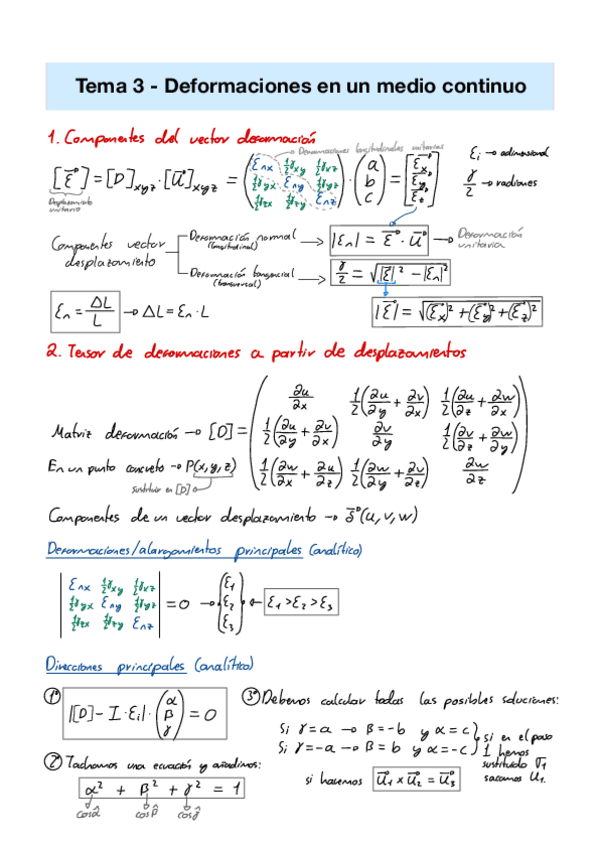 Tema 3 - Deformaciones en un medio continuo
1. Componentes del vector deformación
Deformaciones longitudinales unitarias
[ε⃗] = [D]xyz · [u⃗]xyz = (εnx ½γxy ½γxz; ½γyx εny ½γyz; ½γzx ½γzy εnz) · (a b c) = [ε⃗x ε⃗y ε⃗z]
εi → adimensional
γ/2 → radianes
Desplazamiento unitario
Componentes vector desplazamiento
Deformación normal (longitudinal) → |εn| = ε⃗ · u⃗ → Deformación unitaria
Deformación tangencial (transversal) → γ/2 = √|ε⃗|² - |εn|²
εn = ΔL/L → ΔL = εn · L
|ε⃗| = √(ε⃗x)² + (ε⃗y)² + (ε⃗z)²
2. Tensor de deformaciones a partir de desplazamientos
Matriz deformación → [D] = (∂u/∂x ½(∂u/∂y + ∂v/∂x) ½(∂u/∂z + ∂w/∂x); ½(∂u/∂y + ∂v/∂x) ∂v/∂y ½(∂v/∂z + ∂w/∂y); ½(∂w/∂x + ∂u/∂z) ½(∂w/∂y + ∂v/∂z) ∂w/∂z)
En un punto concreto → P(x,y,z)
sustituir en [D]
Componentes de un vector desplazamiento → δ⃗(u,v,w)
Deformaciones/alargamientos principales (analítico)
|εnx ½γxy ½γxz; ½γyx εny ½γyz; ½γzx ½γzy εnz| = 0 → {ε1 ε2 ε3} ← ε1 > ε2 > ε3
Direcciones principales (analítico)
1º |[D] - I · εi| · (α β γ) = 0
2º Tachamos una ecuación y añadimos:
α² + β² + γ² = 1
cosα̂ cosβ̂ cosγ̂
3º Debemos calcular todas las posibles soluciones:
Si γ = a → β = -b y α = c
Si γ = -a → β = b y α = -c
si en el paso 1 hemos sustituido σ1 sacamos u1.
si hacemos u⃗1 x u⃗2 = u⃗3